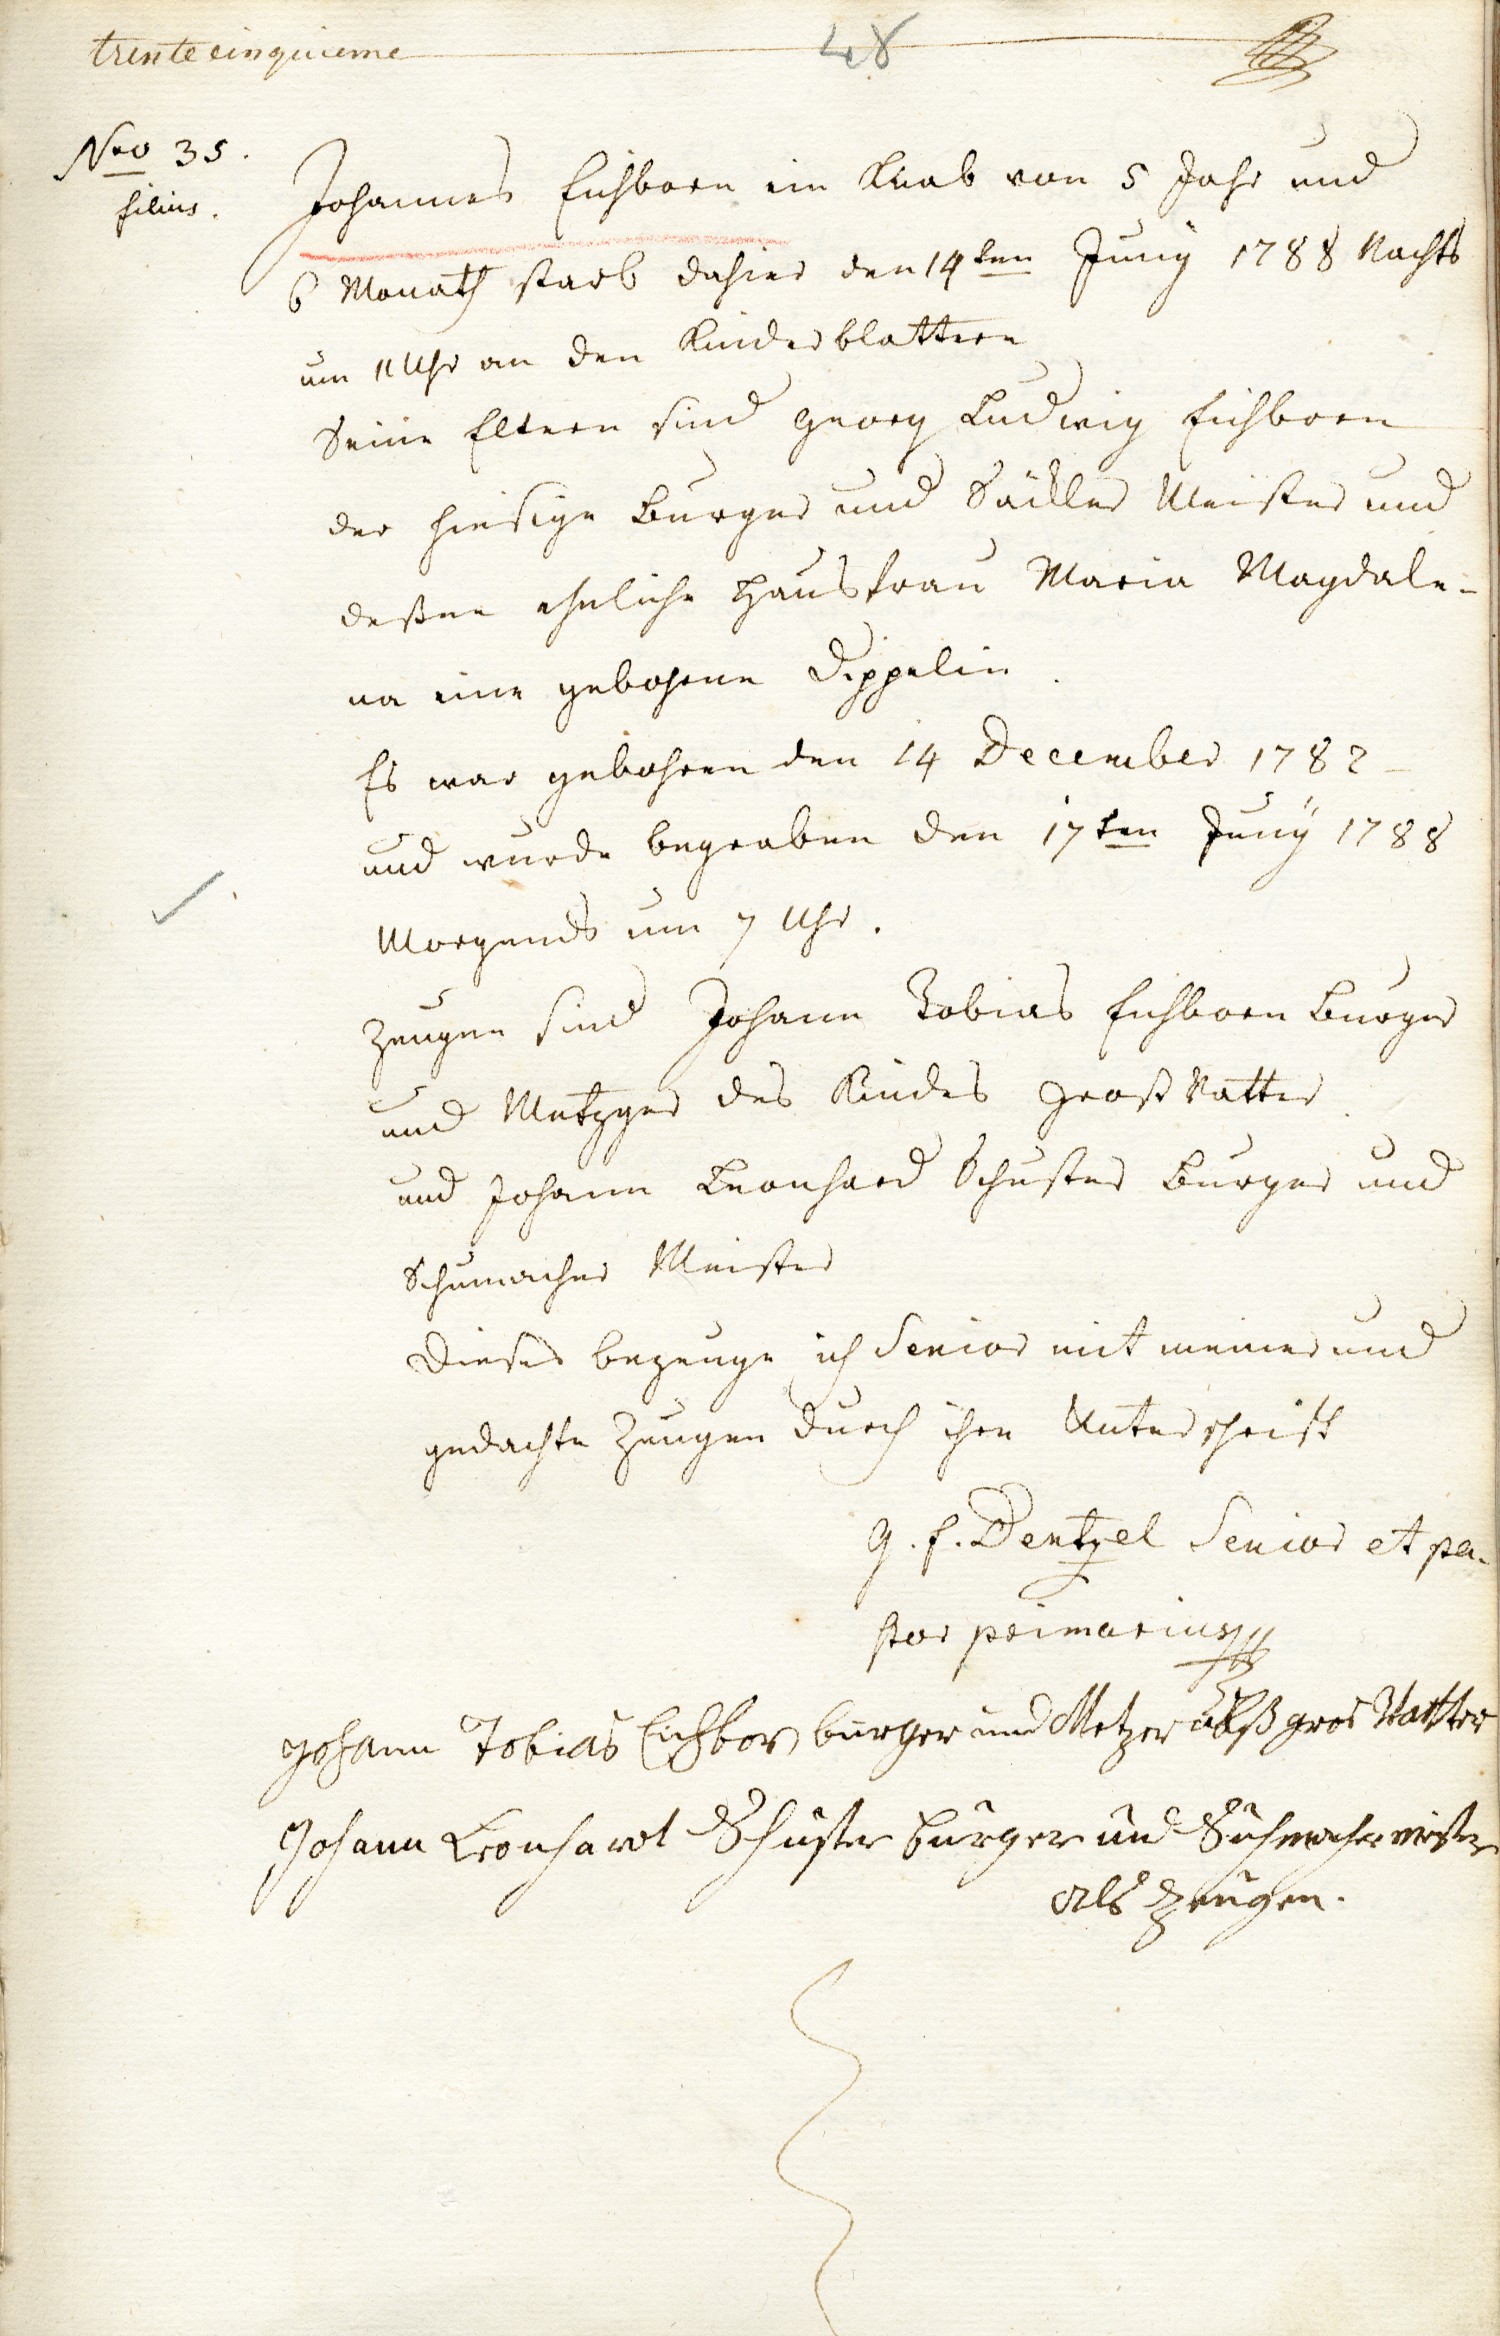 trente cinquieme
48
Nro 35.
filius.
Johannes Eichborn ein Knab von 5 Jahr und
6 Monath starb dahier den 14ten Juny 1788 Nachts
um 11 Uhr an den Kinderblattern
Seine Eltern sind Georg Ludwig Eichborn
der hiesige Burger und Säckler Meister und
deßen eheliche Hausfrau Maria Magdale-
na eine gebohrne Dippelin.
Es war gebohren den 14 December 1782
und wurde begraben den 17ten Juny 1788
Morgends um 7 Uhr.
Zeugen sind Johann Tobias Eichborn Burger
und Metzger des Kindes Groß Vatter
und Johann Leonhard Schuster Burger und
Schumacher Meister
Dieses bezeuge ich Senior mit meiner und
gedachte Zeugen durch ihre Unterschrift
G. F. Dentzel Senior et pa-
stor primarius
Johann Tobias Eichborn burger und Metzer alß gros Vatter
Johann Leonhardt Schuster burger und Suhmacher meister
als Zeugen.